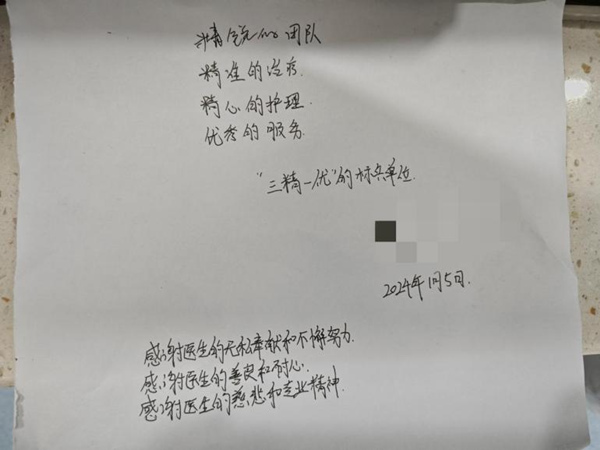 精锐的团队
精准的治疗.
精心的护理.
优秀的服务.
"三精一优"的标兵单位.
2024年1月5日.
感谢医生的无私奉献和不懈努力.
感谢医生的善良和耐心.
感谢医生的慈悲和专业精神.